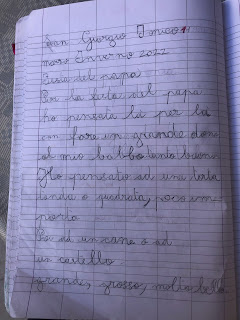 San Giorgio
mars Inverno 2022
Festa del papà
Per la festa del papà
ho pensato là per là
con fare un grande don
al mio babbo tanto buono
Ho pensato ad una torta
tonda o quadrata, poco im
porta
Poi ad un cane o ad
un castello
grande, grosso, molto bello